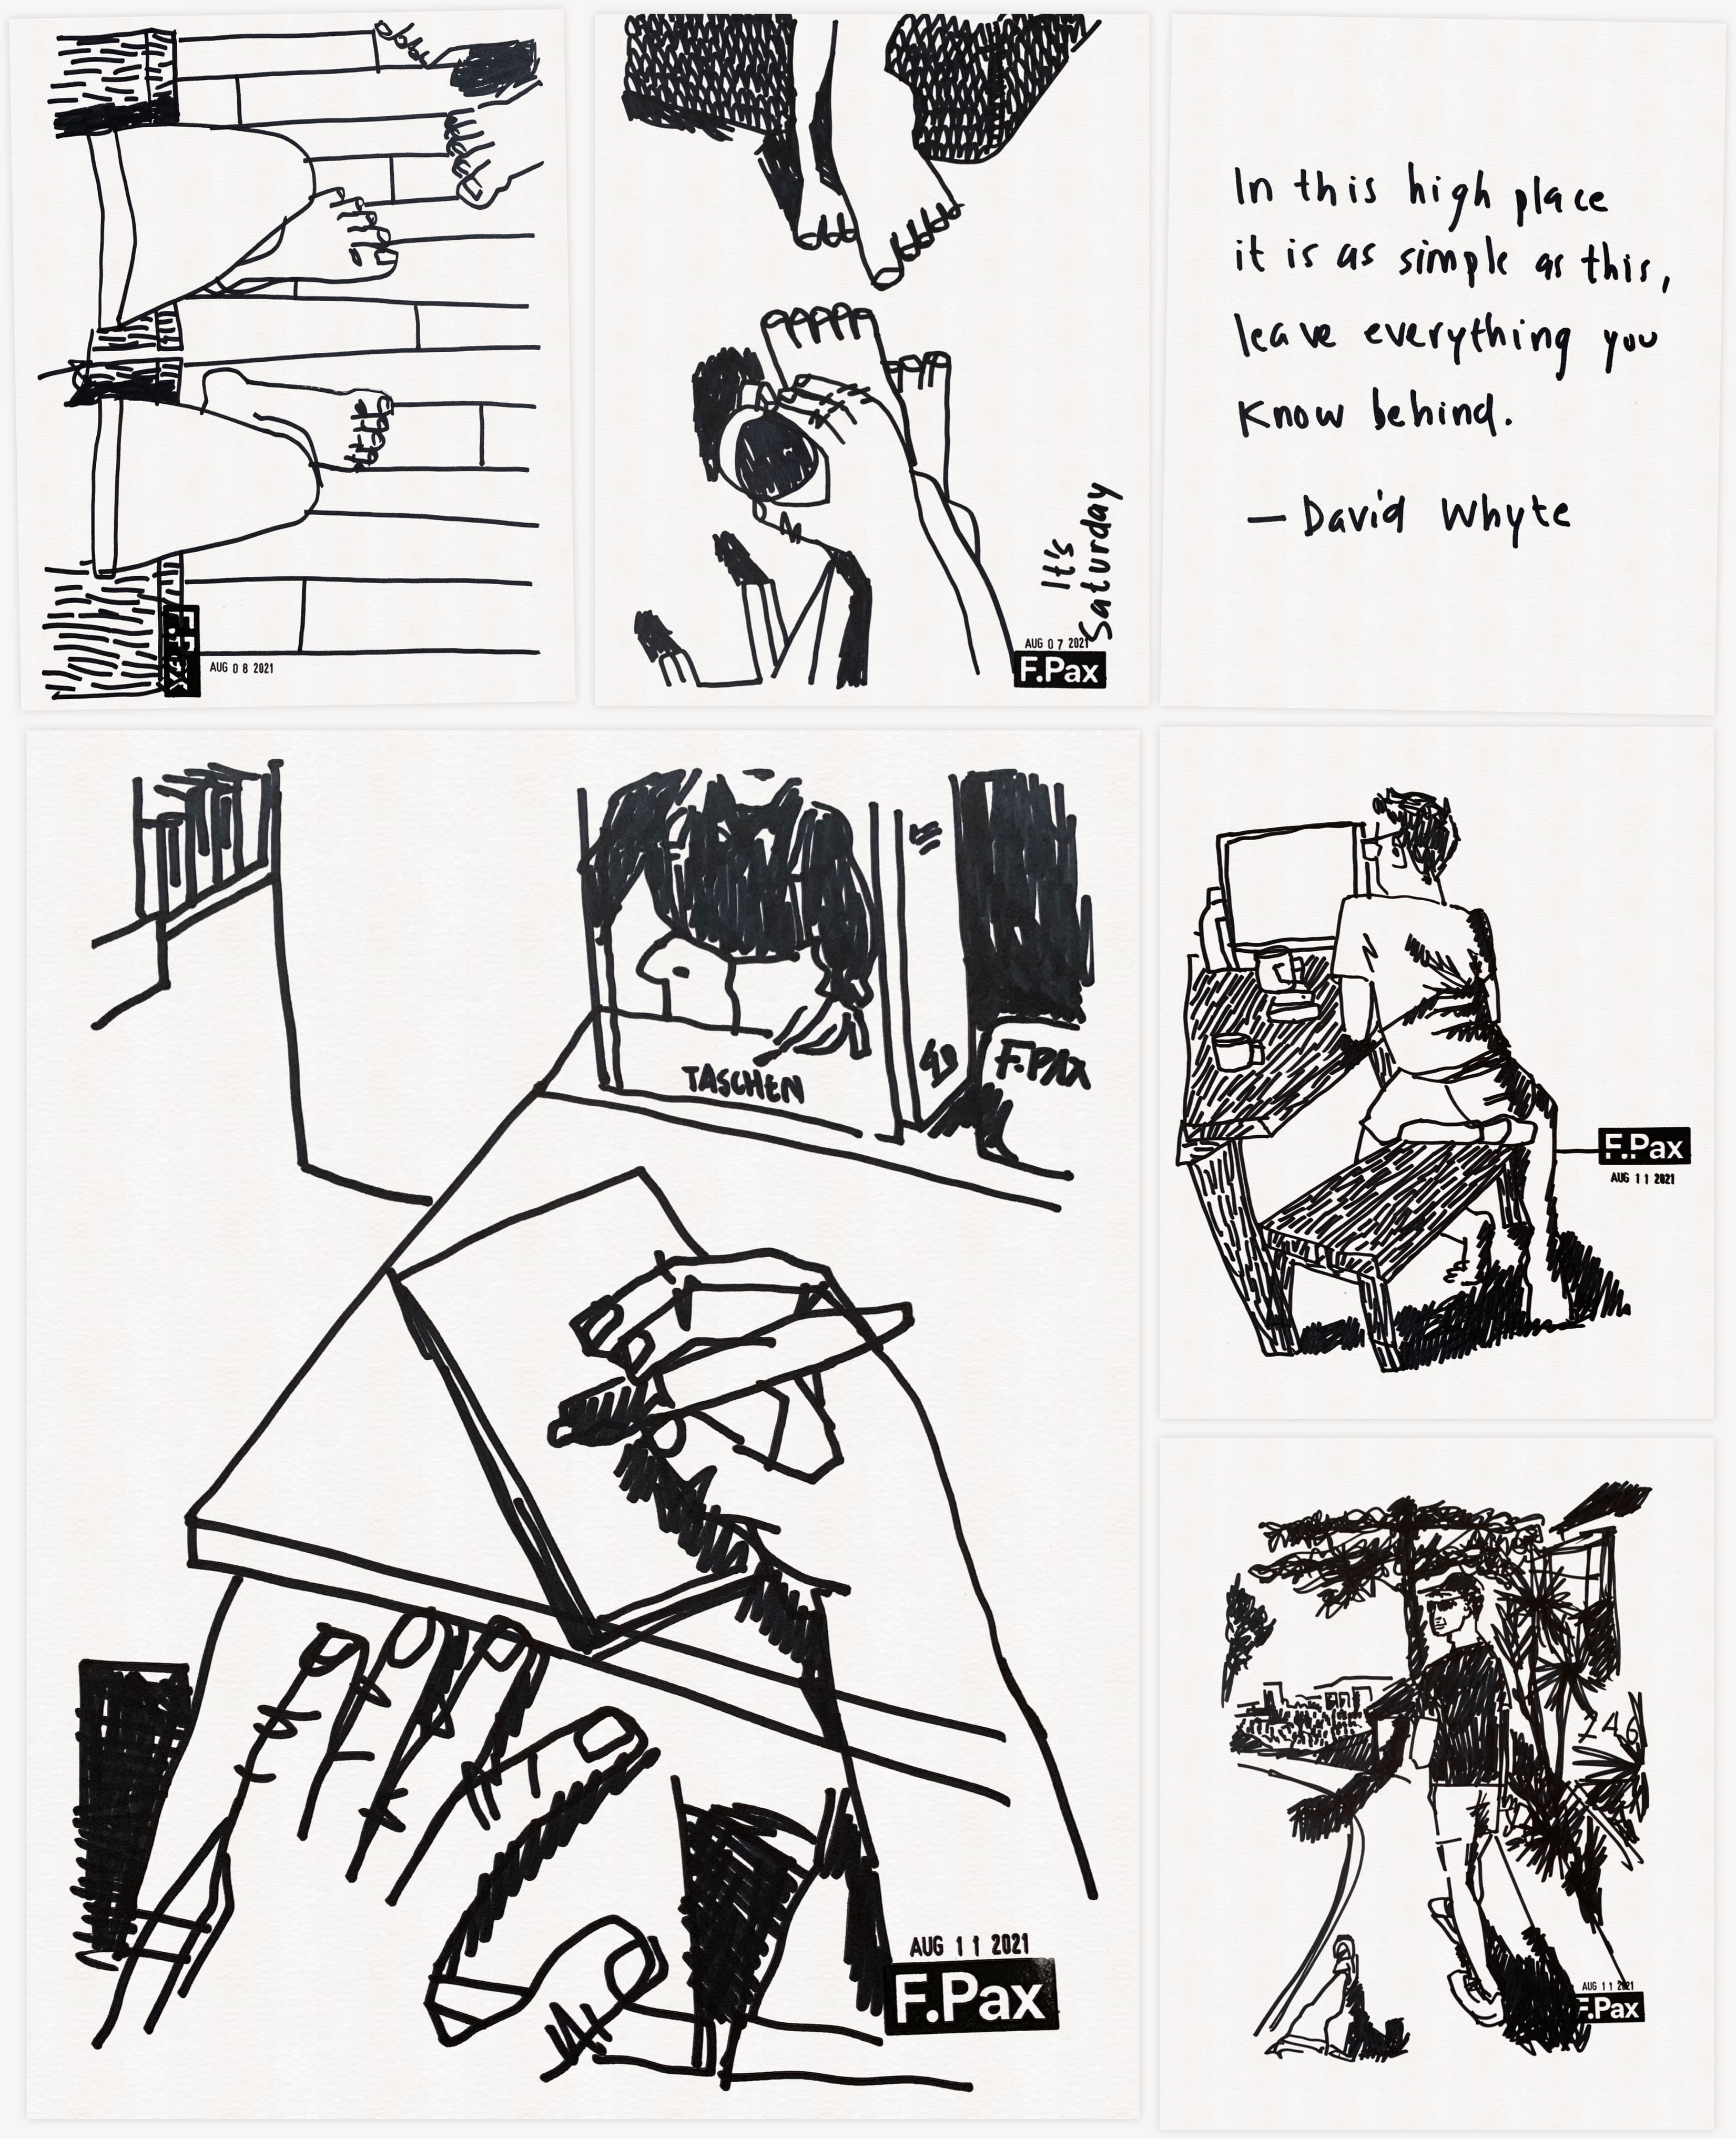 F.Pax
AUG 08 2021
It's
Saturday
AUG 07 2021
F.Pax
In this high place
it is as simple as this,
leave everything you
know behind.
— David Whyte
TASCHEN
F.PAX
AUG 11 2021
F.Pax
F.Pax
AUG 11 2021
246
AUG 11 2021
F.Pax